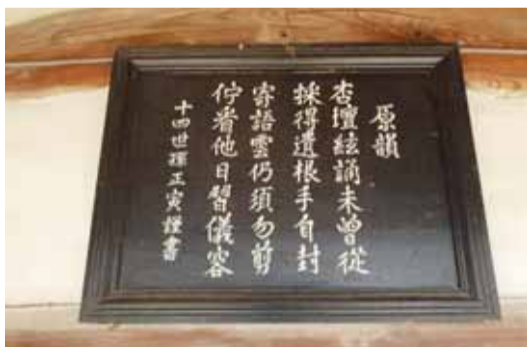 原韻
杏壇絃誦未曾從
採得遺根手自封
寄語雲仍須勿剪
佇看他日習儀容
十四世孫正寅謹書